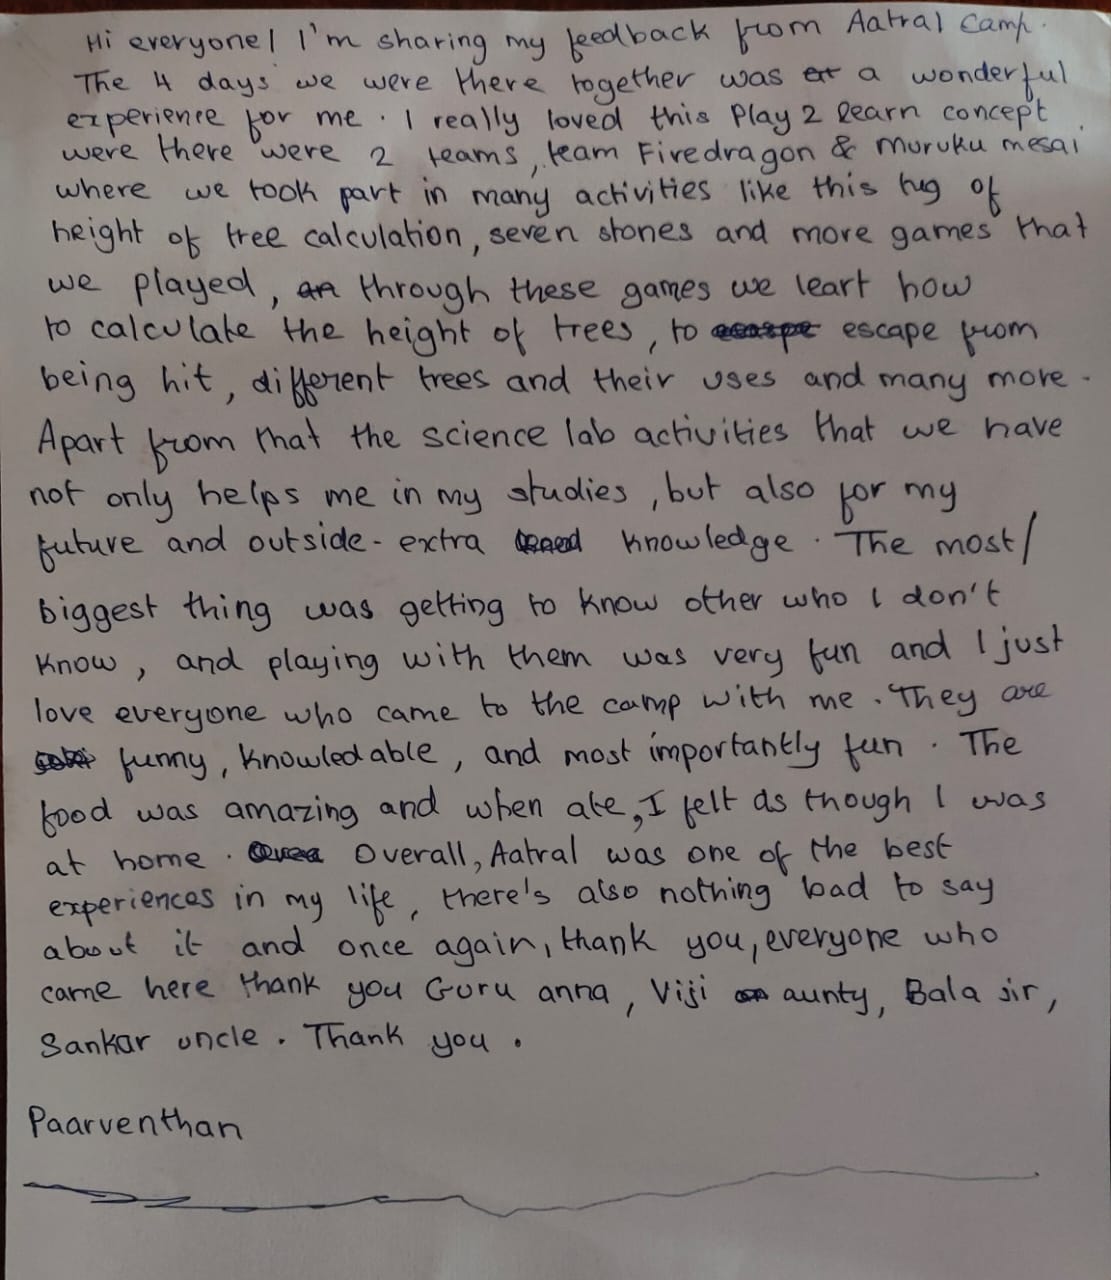 Hi everyone! I'm sharing my feedback from Aatral Camp.
The 4 days we were there together was a wonderful
experience for me. I really loved this Play 2 learn concept
were there were 2 teams, team Firedragon & muruku mesai
where we took part in many activities like this tug of
height of tree calculation, seven stones and more games that
we played, through these games we leart how
to calculate the height of trees, to escape from
being hit, different trees and their uses and many more.
Apart from that the science lab activities that we have
not only helps me in my studies, but also for my
future and outside- extra knowledge. The most/
biggest thing was getting to know other who I don't
know, and playing with them was very fun and I just
love everyone who came to the camp with me. They are
funny, knowledable, and most importantly fun. The
food was amazing and when ate, I felt as though I was
at home. Overall, Aatral was one of the best
experiences in my life, there's also nothing bad to say
about it and once again, thank you, everyone who
came here thank you Guru anna, Viji aunty, Bala sir,
Sankar uncle. Thank you.
Paarventhan